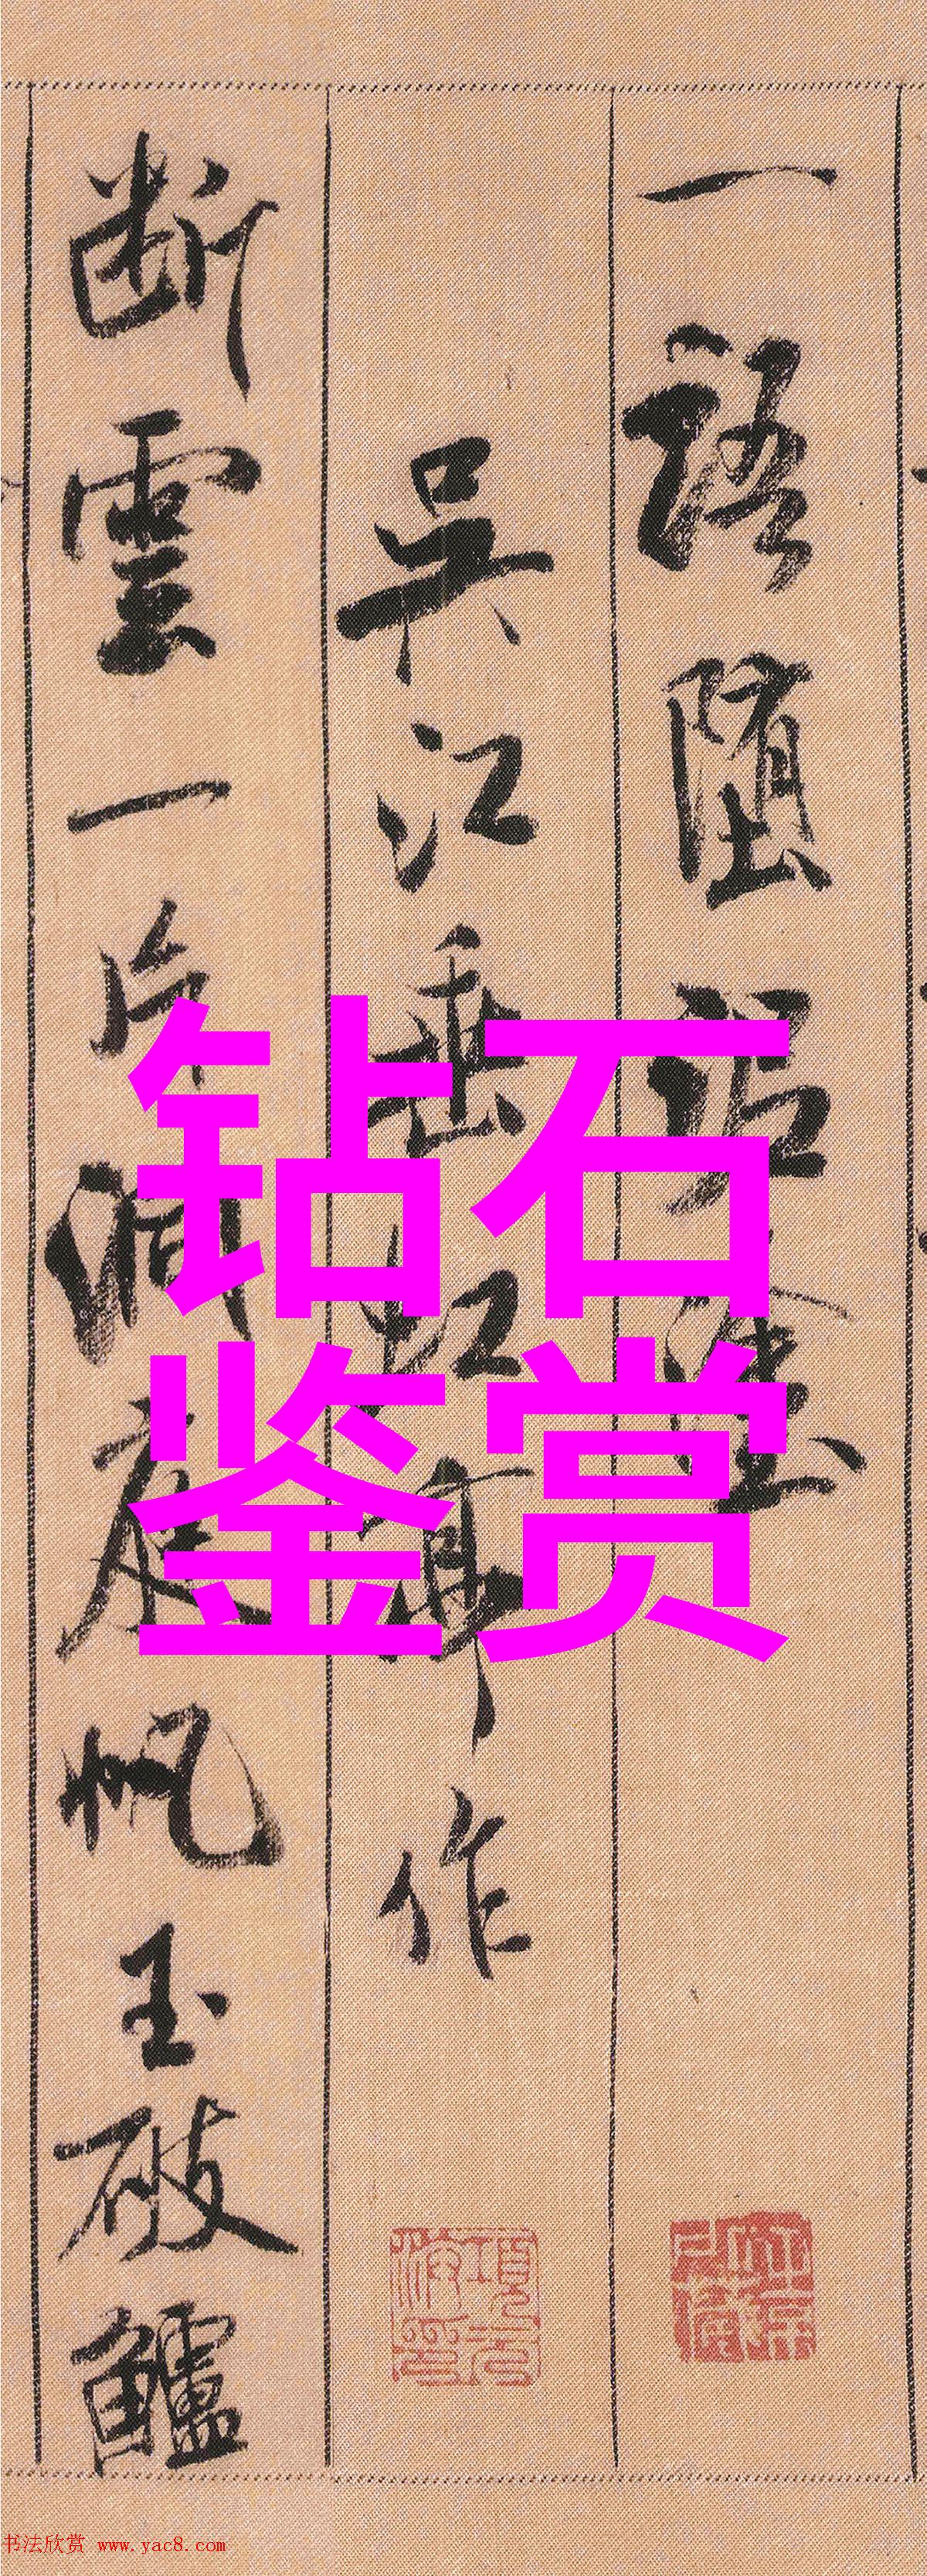 一語墮招隱
吳江垂虹亭作
斷雲一片洞庭帆玉破鱸
钻石
鉴赏
书法欣赏 www.yac8.com